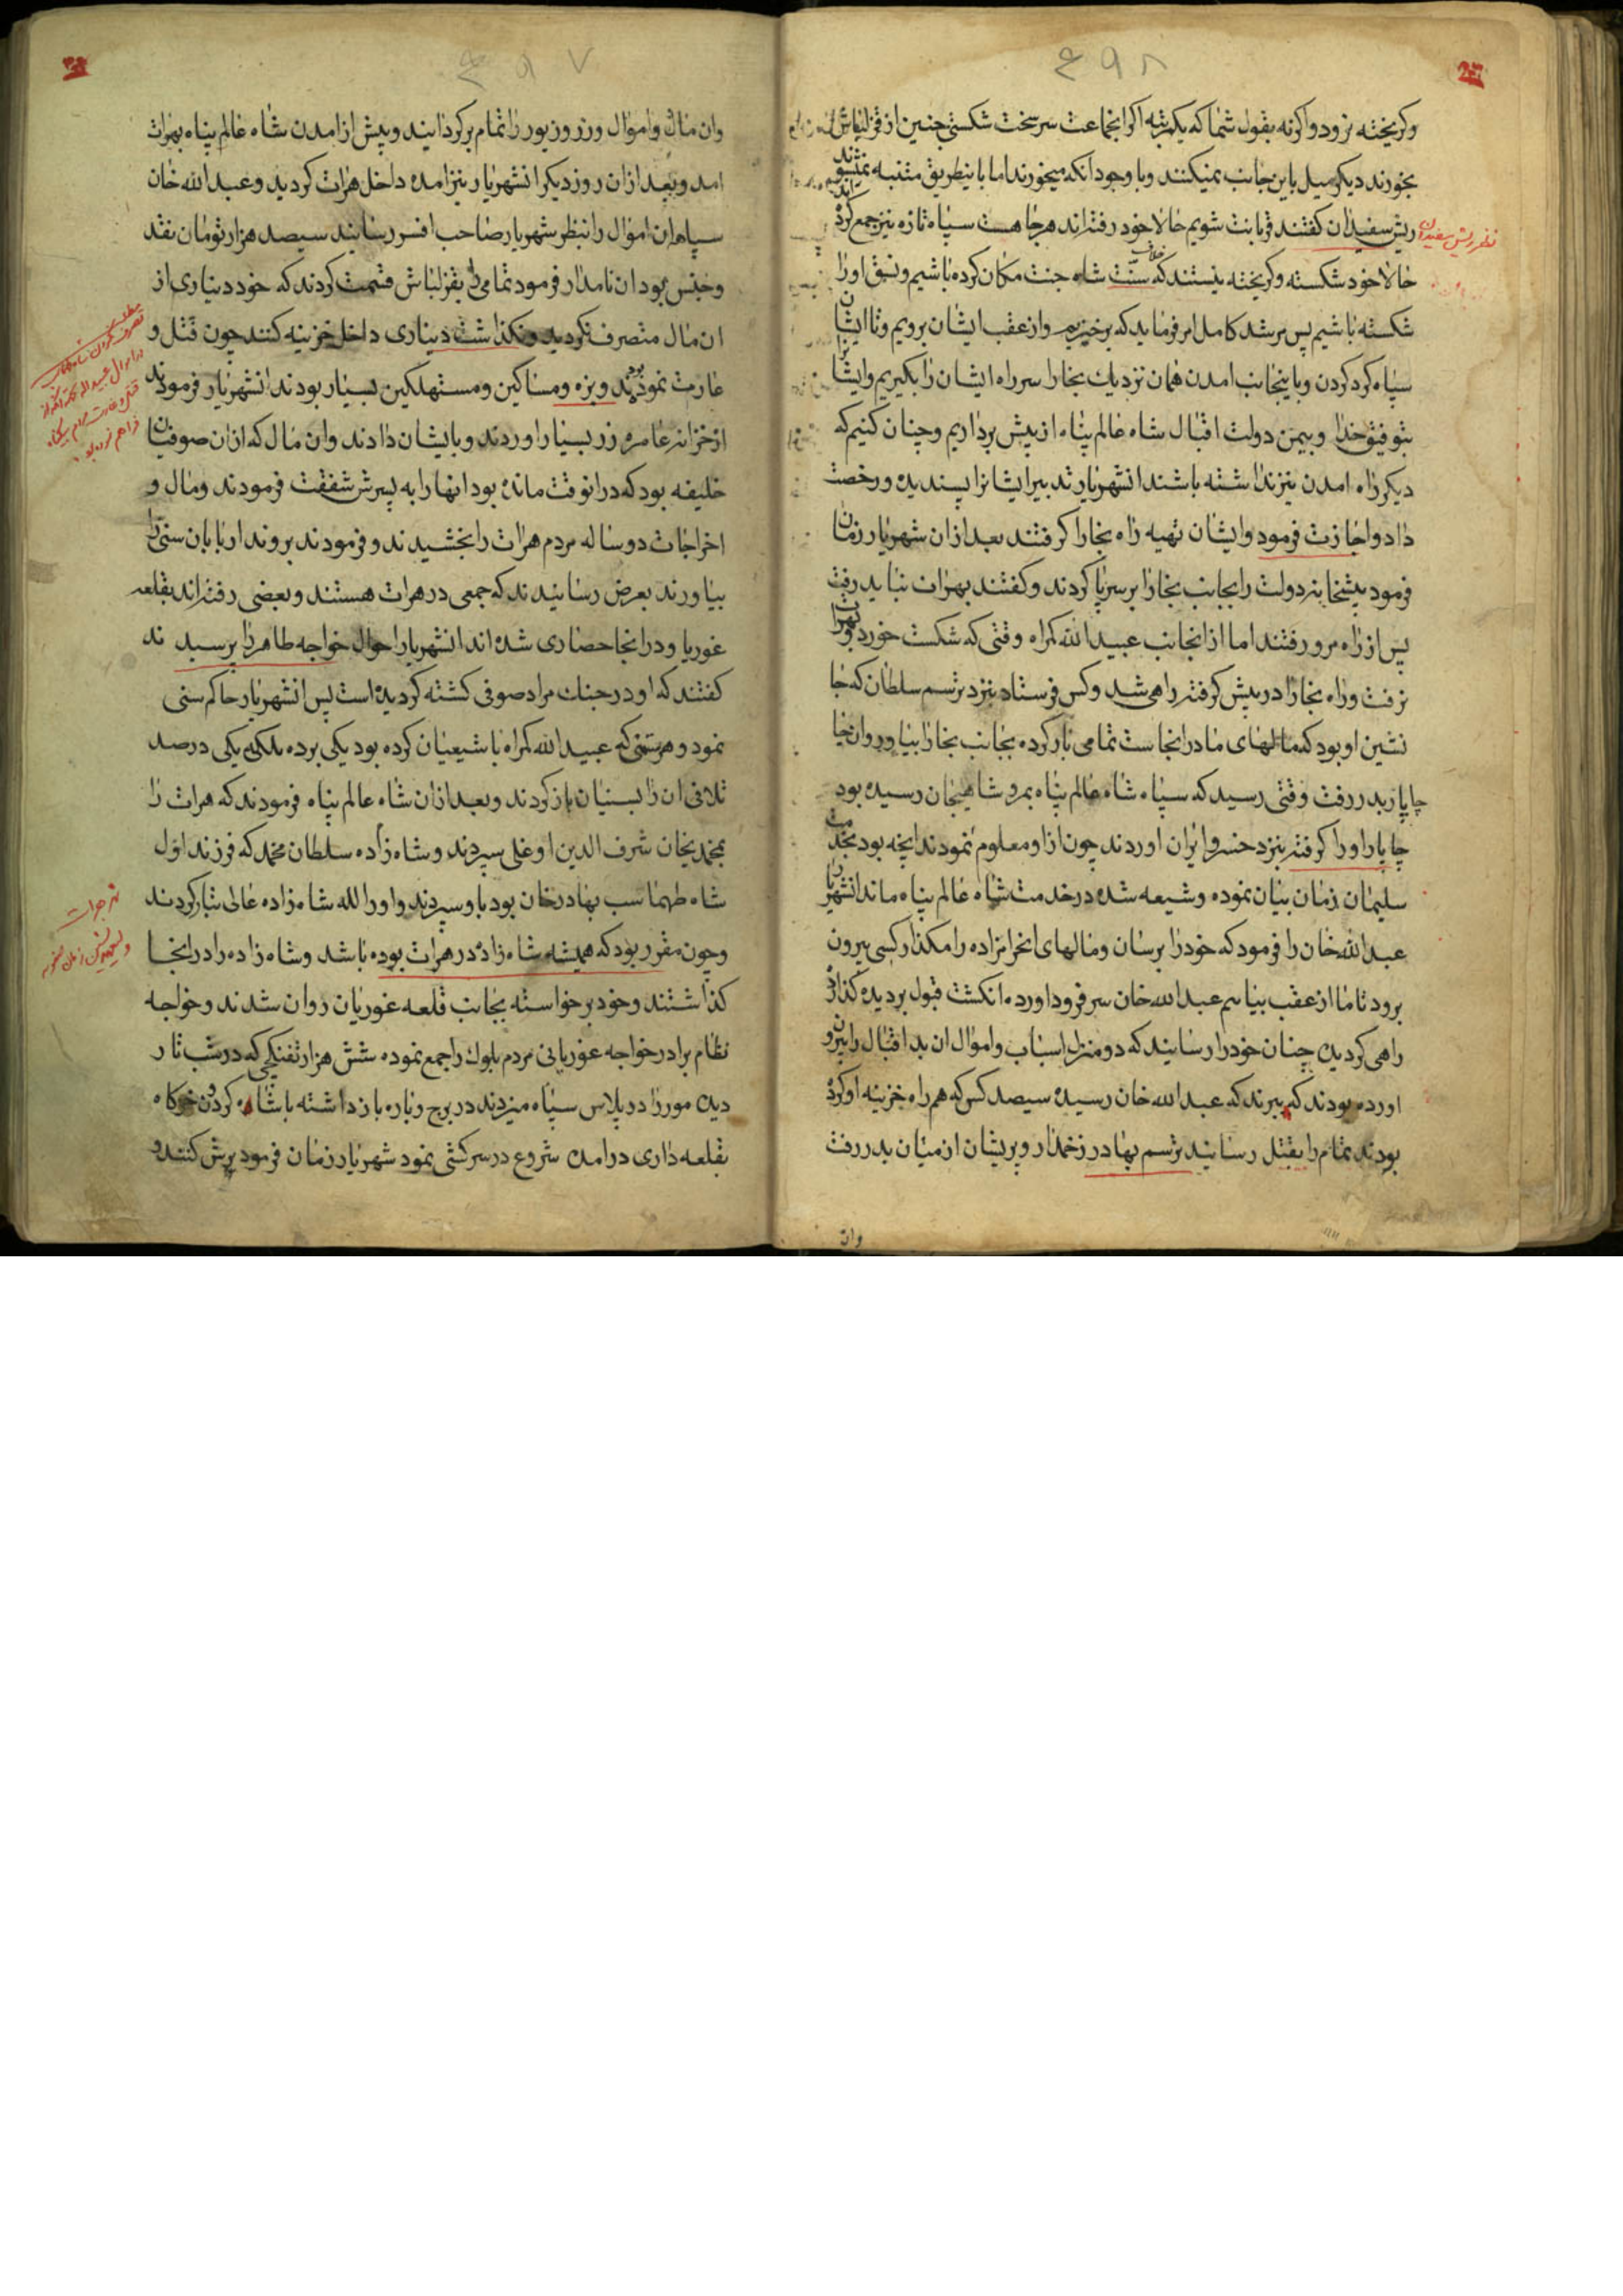 ۴۹۸
وکریخته نرود واکرنه بقول شما که یکمرتبه اکر انجماعت سرسخت شکستی چنین از قزلباش
بخورند دیکر میل باین جانب نمیکنند وبا وجود انکه میخورند اما باینطریق متنبه نمیشوند
ریش سفیدان کفتند قربانت شویم حالا خود رفته اند هرجا هست سپاه تازه نیز جمع کرده اند
حالا خود شکسته وکریخته نیستند که خلاف سنت شاه جنت مکان کرده باشیم ونسق اورا
شکسته باشیم پس مرشد کامل امر فرماید که برخیزیم واز عقب ایشان برویم وتا ایشان
سپاه کرد کردن وباینجانب امدن همان نزدیک بخارا سر راه ایشان را بکیریم وایشانرا
بتوفیق خدا وبیمن دولت اقبال شاه عالم پناه از پیش برداریم وچنان کنیم که
دیکر راه امدن نیز نداشته باشند انشهریار تدبیر ایشانرا پسندیده ورخصت
داد واجازت فرمود وایشان تهیه راه بخارا کرفتند بعد ازان شهریار زمان
فرمود پیشخانه دولت را بجانب بخارا بر سرپا کردند وکفتند بهرات نباید رفت
پس از راه مرو رفتند اما از انجانب عبید الله کمراه وقتی که شکست خورد وبهرات
نرفت وراه بخارا در پیش کرفته راهی شد وکس فرستاد بنزد ترسم سلطان که جا
نشین او بود که مالهای ما در انجاست تمامی بار کرده بجانب بخارا بیاور وان
چاپار بدر رفت وقتی رسید که سپاه شاه عالم پناه بمرو شاهیجان رسیده بود
چاپار اورا کرفته بنزد خسرو ایران اوردند چون ازاو معلوم نمودند انچه بود بخدمت
سلیمان زمان بیان نموده وشیعه شده در خدمت شاه عالم پناه ماند انشهریار
عبدالله خان را فرمود که خودرا برسان ومالهای انحرامزاده را مکذار کسی بیرون
برود تا ما از عقب بیایم عبدالله خان سر فرود اورده انکشت قبول بر دیده کذارده
راهی کردید چنان خودرا رسانید که دو منزل اسباب واموال ان بد اقبال را بیرون
اورده بودند که ببرند که عبدالله خان رسیده سیصد کس که همراه خزینه او کرده
بودند تمام را بقتل رسانید ترسم بهادر زخمدار وپریشان از میان بدر رفت
وان
نظر ریش سفیدان
۴۹۷
وان مال واموال وزر وزیور را تمام برکردانید وپیش از امدن شاه عالم پناه بهرات
امد وبعد ازان روز دیکر انشهریار نیز امده داخل هرات کردید وعبدالله خان
سپاه ان اموال را بنظر شهریار صاحب افسر رسانید سیصد هزار تومان نقد
وجنس بود ان نامدار فرمود تمامی را بقزلباش قسمت کردند که خود دیناری از
ان مال متصرف نکردید ونکذاشت دیناری داخل خزینه کنند چون قتل و
غارت نموده بودند وبزه ومساکین ومستهلکین بسیار بودند انشهریار فرمودند
از خزانه عامره زر بسیار اوردند وبایشان دادند وان مال که ازان صوفیان
خلیفه بود که در انوقت مانده بود انها را به پسرش شفقت فرمودند ومال و
اخراجات دو ساله مردم هرات را بخشیدند وفرمودند بروند اربابان سنی را
بیاورند بعرض رسانیدند که جمعی در هرات هستند وبعضی رفته اند بقلعه
غوریا ودر انجا حصاری شده اند انشهریار احوال خواجه طاهر را پرسیدند
کفتند که او در جنک مراد صوفی کشته کردیده است پس انشهریار حاکم سنی
نمود وهر ستمی که عبید الله کمراه با شیعیان کرده بود یکی برده بلکه یکی در صد
تلافی ان را بسنیان باز کردند وبعد ازان شاه عالم پناه فرمودند که هرات را
بمحمدیخان شرف الدین اوغلی سپردند وشاه زاده سلطان محمد که فرزند اول
شاه طهماسب بهادر خان بود باو سپردند واورا لله شاه زاده عالی تبار کردند
وچون مقرر بود که همیشه شاه زاده در هرات بوده باشد وشاه زاده را در انجا
کذاشتند وخود برخواسته بجانب قلعه غوریان روان شدند وخواجه
نظام برادر خواجه غوریانی مردم بلوک را جمع نموده شش هزار تفنکچی که در شب تار
دیده مور را در پلاس سیاه میزدند در برج وباره باز داشته
بقلعه داری درامده شروع در سرکشی نمود شهریار زمان فرمود یرش کنند و